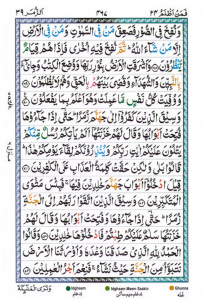 فَمَنْ اَظْلَمُ ٢٤ الزُّمَر ٣٩
وَنُفِخَ فِی الصُّوْرِ فَصَعِقَ مَنْ فِی السَّمٰوٰتِ وَمَنْ فِی الْاَرْضِ
اِلَّا مَنْ شَآءَ اللّٰهُ ؕ ثُمَّ نُفِخَ فِیْهِ اُخْرٰی فَاِذَا هُمْ قِیَامٌ
یَّنْظُرُوْنَ ۝ وَاَشْرَقَتِ الْاَرْضُ بِنُوْرِ رَبِّهَا وَوُضِعَ الْكِتٰبُ وَجِایْٓءَ
بِالنَّبِیّٖنَ وَالشُّهَدَآءِ وَقُضِیَ بَیْنَهُمْ بِالْحَقِّ وَهُمْ لَا یُظْلَمُوْنَ ۝
وَوُفِّیَتْ كُلُّ نَفْسٍ مَّا عَمِلَتْ وَهُوَ اَعْلَمُ بِمَا یَفْعَلُوْنَ ۝
وَسِیْقَ الَّذِیْنَ كَفَرُوْۤا اِلٰی جَهَنَّمَ زُمَرًا ؕ حَتّٰۤی اِذَا جَآءُوْهَا
فُتِحَتْ اَبْوَابُهَا وَقَالَ لَهُمْ خَزَنَتُهَاۤ اَلَمْ یَاْتِكُمْ رُسُلٌ مِّنْكُمْ
یَتْلُوْنَ عَلَیْكُمْ اٰیٰتِ رَبِّكُمْ وَیُنْذِرُوْنَكُمْ لِقَآءَ یَوْمِكُمْ هٰذَا ؕ
قَالُوْا بَلٰی وَلٰكِنْ حَقَّتْ كَلِمَةُ الْعَذَابِ عَلَی الْكٰفِرِیْنَ ۝
قِیْلَ ادْخُلُوْۤا اَبْوَابَ جَهَنَّمَ خٰلِدِیْنَ فِیْهَا ۚ فَبِئْسَ مَثْوَی
الْمُتَكَبِّرِیْنَ ۝ وَسِیْقَ الَّذِیْنَ اتَّقَوْا رَبَّهُمْ اِلَی الْجَنَّةِ
زُمَرًا ؕ حَتّٰۤی اِذَا جَآءُوْهَا وَفُتِحَتْ اَبْوَابُهَا وَقَالَ لَهُمْ
خَزَنَتُهَا سَلٰمٌ عَلَیْكُمْ طِبْتُمْ فَادْخُلُوْهَا خٰلِدِیْنَ ۝ وَقَالُوا
الْحَمْدُ لِلّٰهِ الَّذِیْ صَدَقَنَا وَعْدَهٗ وَاَوْرَثَنَا الْاَرْضَ
نَتَبَوَّاُ مِنَ الْجَنَّةِ حَیْثُ نَشَآءُ ۚ فَنِعْمَ اَجْرُ الْعٰمِلِیْنَ ۝
وَتَرَی الْمَلٰٓئِكَةَ
Idghaam Idghaam Meem Saakin Ghunna